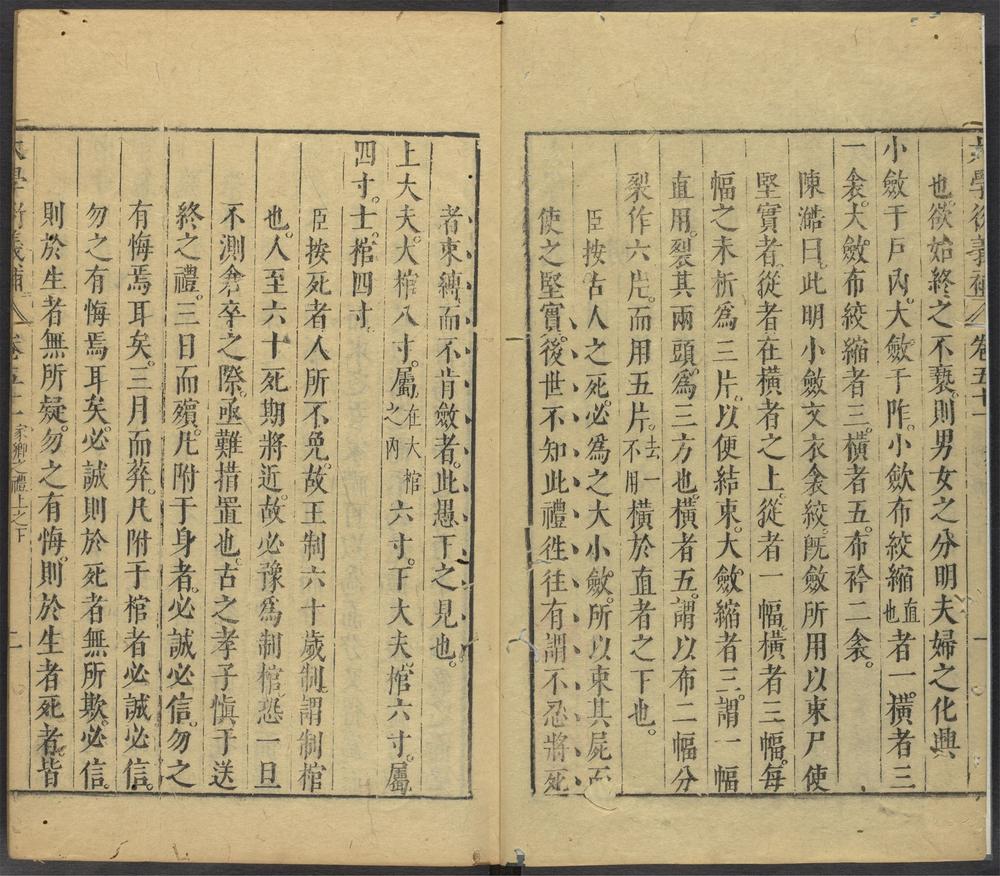 大學衍義補 卷五十一 一
也欲始終之不䙝則男女之分明夫婦之化興
小斂于戶內大斂于阼小斂布絞縮直也者一橫者三
一衾大斂布絞縮者三橫者五布衿二衾
陳澔曰此明小斂文衣衾絞旣斂所用以束尸使
堅實者從者在橫者之上從者一幅橫者三幅每
幅之末析爲三片以便結束大斂縮者三謂一幅
直用裂其兩頭爲三方也橫者五謂以布二幅分
裂作六片而用五片去一不用橫於直者之下也
臣按古人之死必爲之大小斂所以束其屍而
使之堅實後世不知此禮徃徃有謂不忍將死
者束縛而不肯斂者此愚下之見也
上大夫大棺八寸屬在大棺之內六寸下大夫棺六寸屬
四寸士棺四寸
臣按死者人所不免故王制六十歲制謂制棺
也人至六十死期將近故必豫爲制棺恐一旦
不測倉卒之際亟難措置也古之孝子愼于送
終之禮三日而殯凡附于身者必誠必信勿之
有悔焉耳矣三月而葬凡附于棺者必誠必信
勿之有悔焉耳矣必誠則於死者無所欺必信
則於生者無所疑勿之有悔則於生者死者皆
大學衍義補 卷五十一 家鄉之禮上之下 二